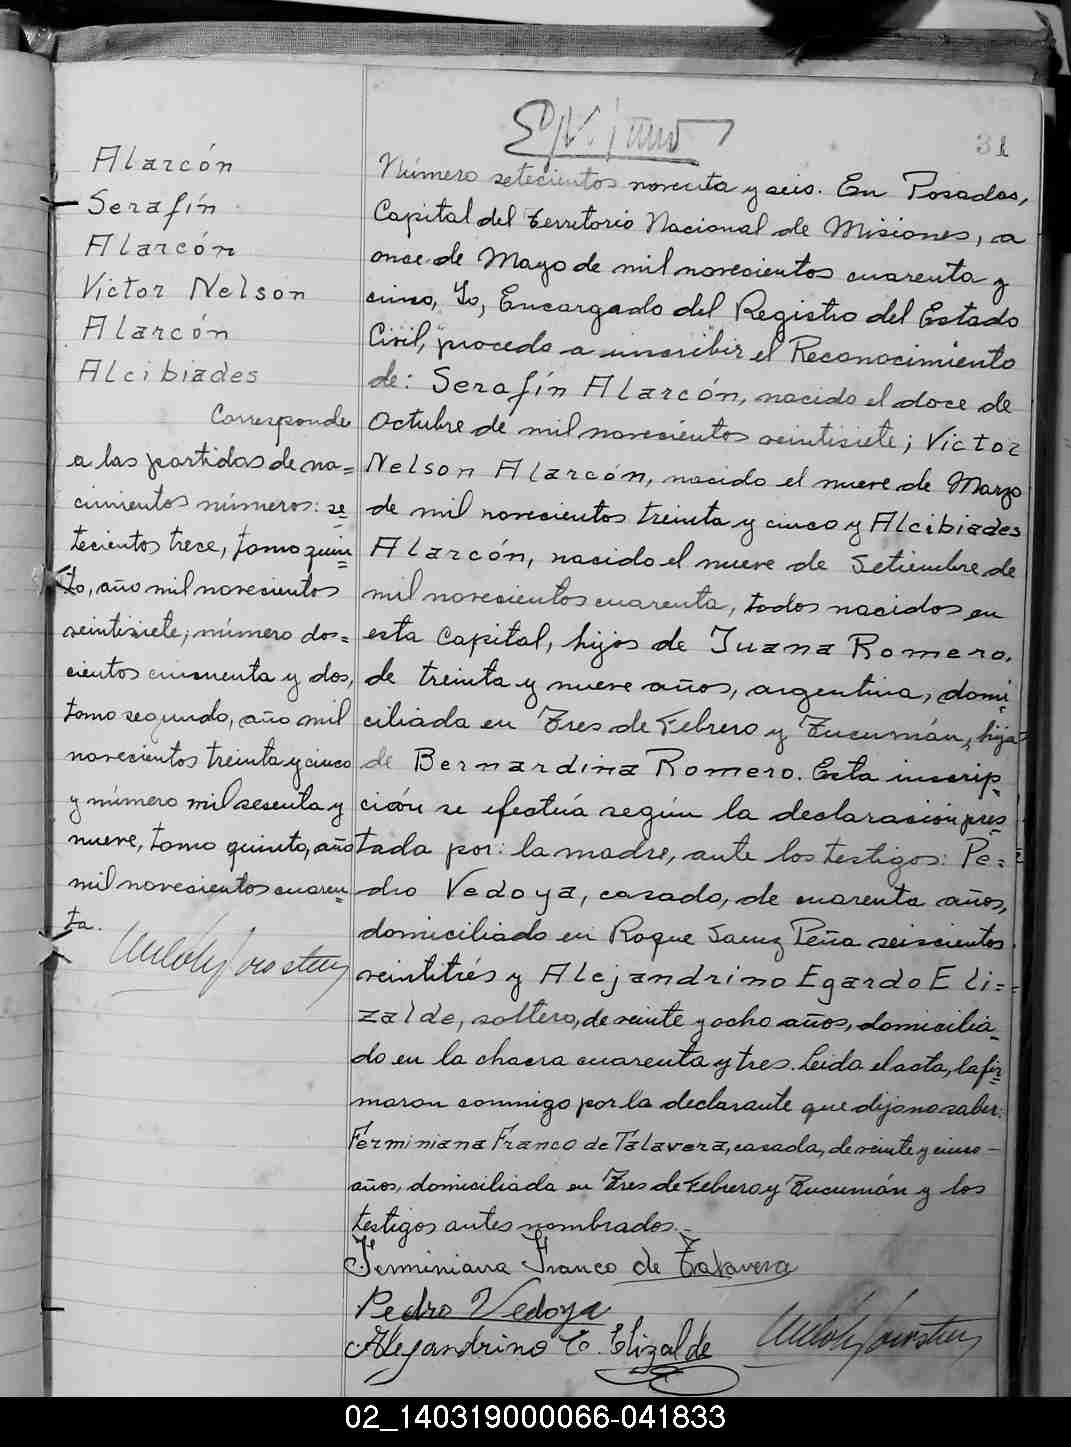 31
Alarcón
Serafín
Alarcón
Victor Nelson
Alarcón
Alcibiades
Corresponde
a las partidas de na=
cimientos números: se=
tecientos trece, tomo quin=
to, año mil novecientos
veintisiete; número dos=
cientos cincuenta y dos,
tomo segundo, año mil
novecientos treinta y cinco
y número mil sesenta y
nueve, tomo quinto, año
mil novecientos cuaren=
ta.
Número setecientos noventa y seis. En Posadas,
Capital del Territorio Nacional de Misiones, a
once de Mayo de mil novecientos cuarenta y
cinco, Yo, Encargado del Registro del Estado
Civil, procedo a inscribir el Reconocimiento
de: Serafín Alarcón, nacido el doce de
Octubre de mil novecientos veintisiete; Victor
Nelson Alarcón, nacido el nueve de Marzo
de mil novecientos treinta y cinco y Alcibiades
Alarcón, nacido el nueve de Setiembre de
mil novecientos cuarenta, todos nacidos en
esta Capital, hijos de Juana Romero,
de treinta y nueve años, argentina, domi=
ciliada en Tres de Febrero y Tucumán, hija
de Bernardina Romero. Esta inscrip=
ción se efectúa según la declaración pres=
tada por: la madre, ante los testigos: Pe=
dro Vedoya, casado, de cuarenta años,
domiciliado en Roque Saenz Peña seiscientos
veintitrés y Alejandrino Egardo Eli=
zalde, soltero, de veinte y ocho años, domicilia=
do en la chacra cuarenta y tres. Leida el acta, la fir=
maron conmigo por la declarante que dijo no saber:
Ferminiana Franco de Talavera, casada, de veinte y cinco -
años, domiciliada en Tres de Febrero y Tucumán y los
testigos antes nombrados.-
Ferminiana Franco de Talavera
Pedro Vedoya
Alejandrino E. Elizalde
02_140319000066-041833